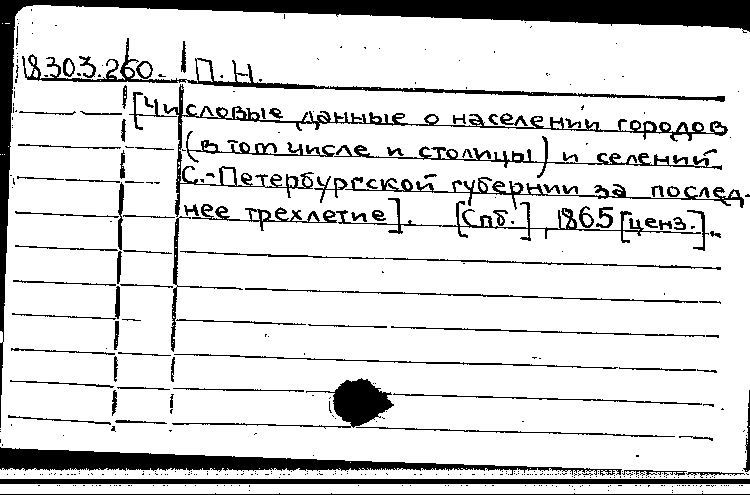 18.30.3.260. П. Н.
[Числовые данные о населении городов
(в том числе и столицы) и селений
С.-Петербургской губернии за послед-
нее трехлетие]. [Спб.], 1865 [ценз.].